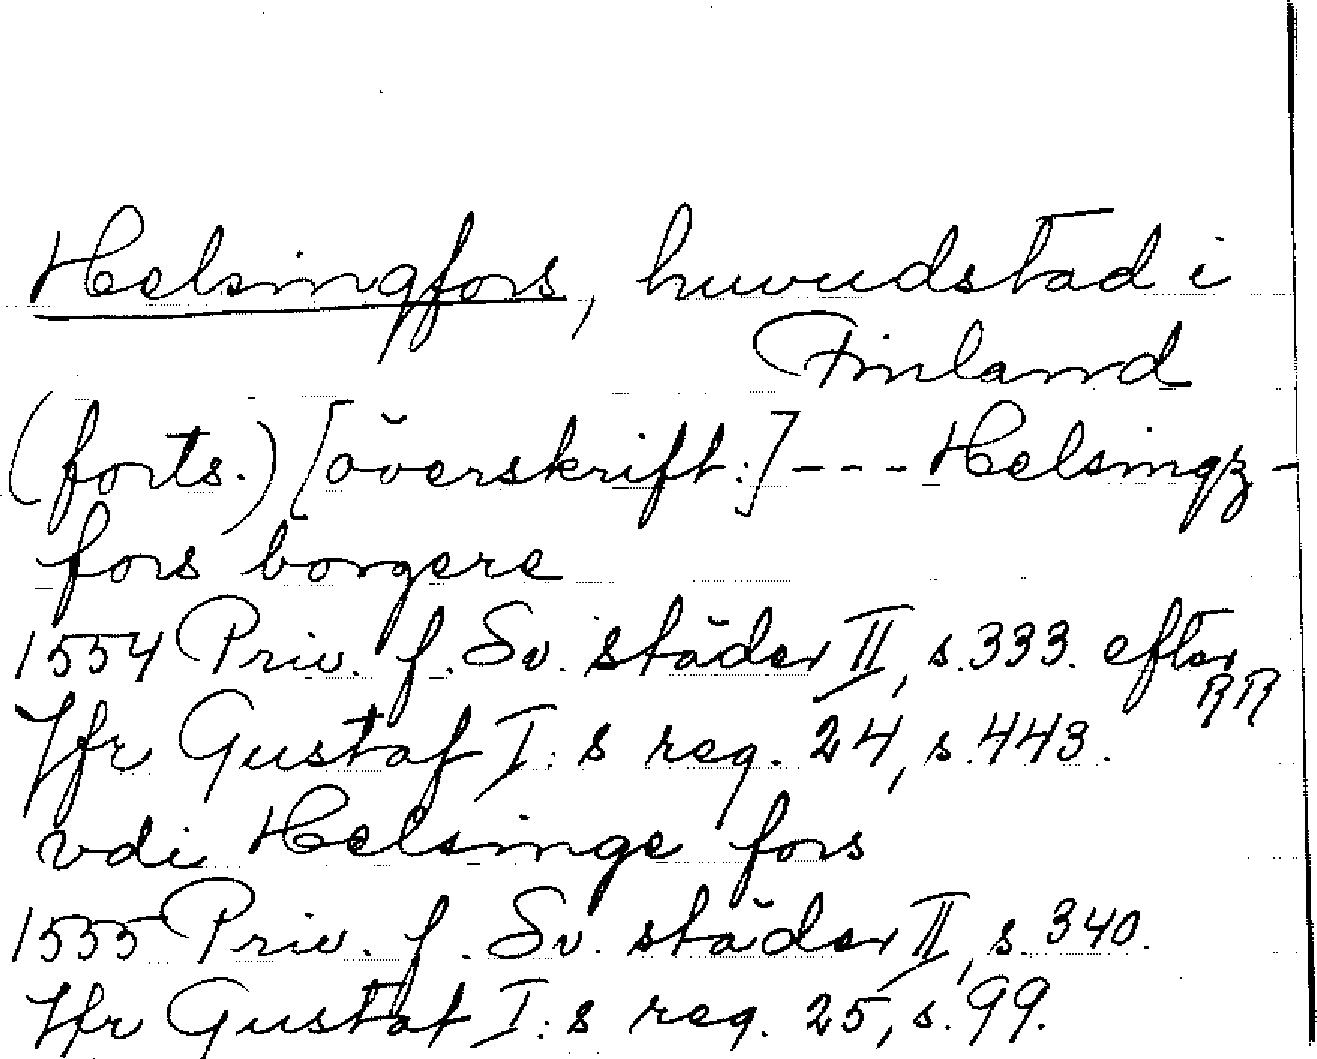 Helsingfors, huvudstad i
Finland
(forts.) [överskrift:] --- Helsingz-
fors borgere
1554 Priv. f. Sv. städer II, s. 333. efter
RR
Jfr Gustaf I:s reg. 24, s. 443.
vdi Helsinge fors
1555 Priv. f. Sv. städer II, s. 340.
Jfr Gustaf I:s reg. 25, s. 99.